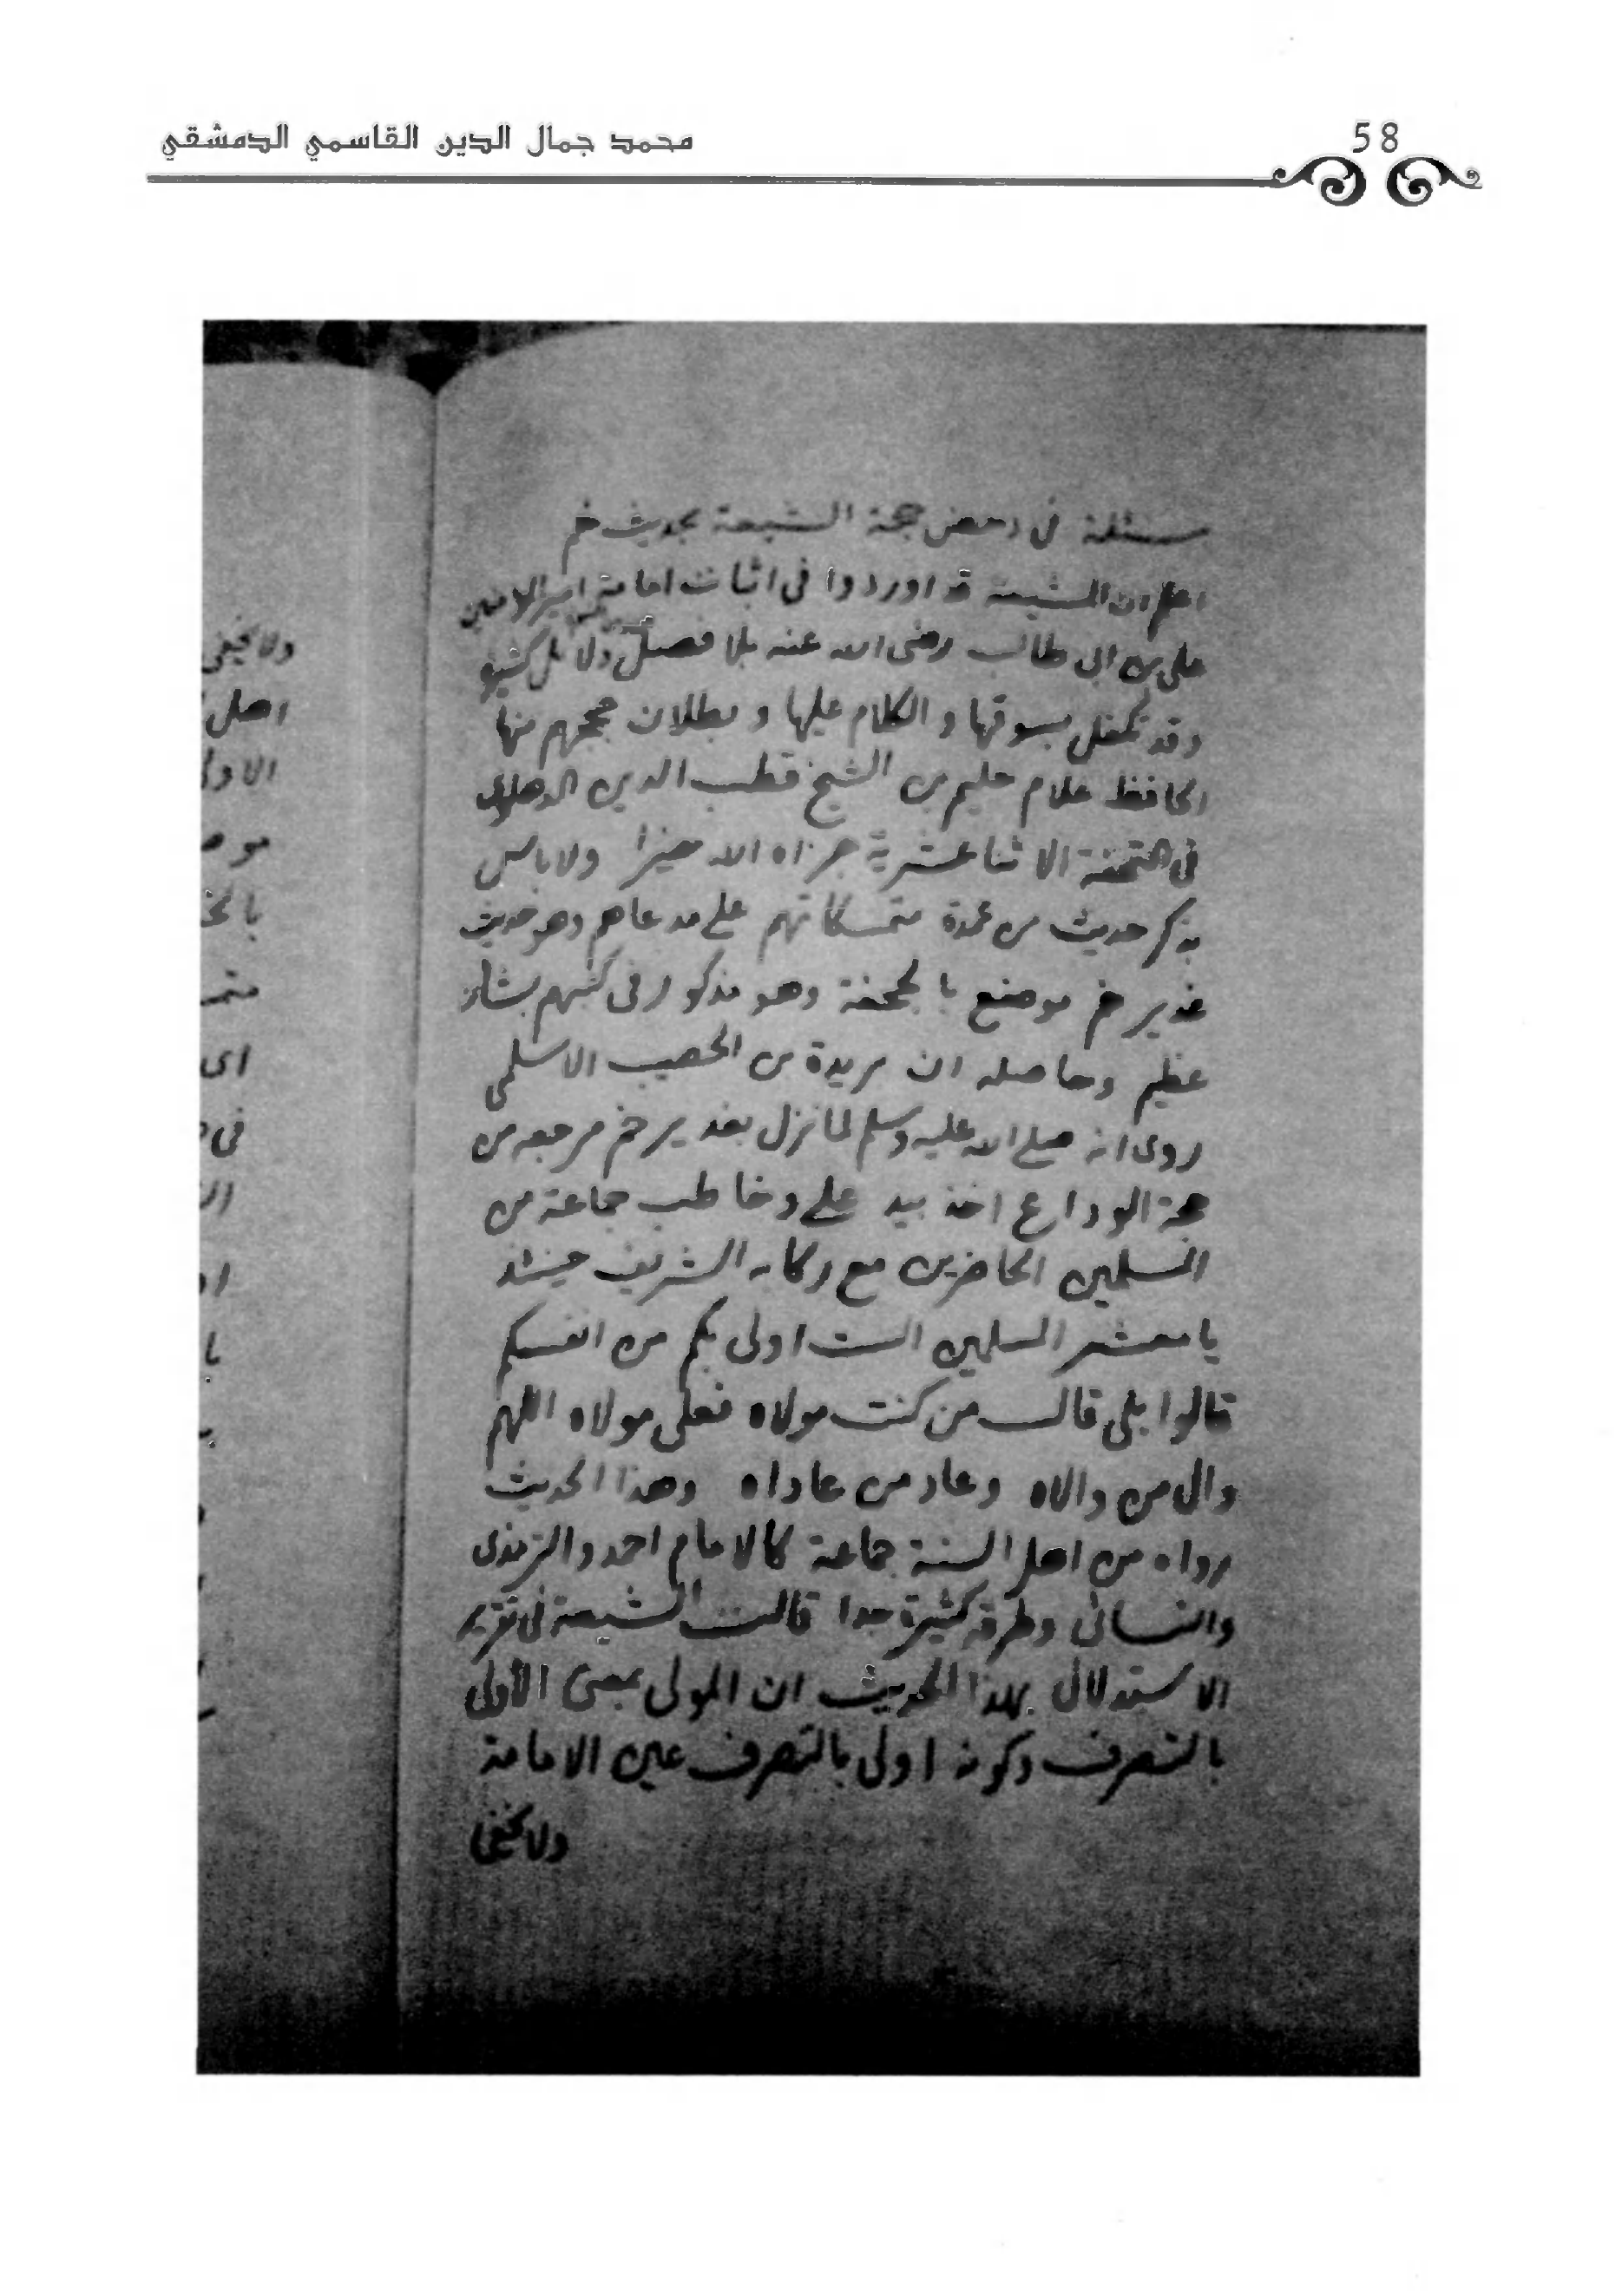 58
محمد جمال الدين القاسمي الدمشقي
مسئلة في دحض حجة الشيعة بحديث خم
اعلم ان الشيعة قد اوردوا في اثبات امامة امير المؤمنين
على بن ابى طالب رضى الله عنه بلا فصل دلائل كثيرة
وقد تكفل بسوقها و الكلام عليها و بطلان حججهم منها
الحافظ غلام حليم بن الشيخ قطب الدين الدهلوى
في التحفة الاثنا عشرية جزاه الله خيرا ولا باس
بذكر حديث من عمدة متمسكاتهم على مدعاهم وهو حديث
غدير خم موضع بالجحفة وهو مذكور في كتبهم بشان
عظيم وحاصله ان بريدة بن الحصيب الاسلمى
روى انه صلى الله عليه وسلم لما نزل بغدير خم مرجعه من
حجة الوداع اخذ بيد على وخاطب جماعة من
المسلمين الحاضرين مع ركابه الشريف حينئذ
يا معشر المسلمين الست اولى بكم من انفسكم
قالوا بلى قال من كنت مولاه فعلى مولاه اللهم
وال من والاه وعاد من عاداه وهذا الحديث
رواه من اهل السنة جماعة كالامام احمد والترمذى
والنسائى وطرقه كثيرة جدا قالت الشيعة في تقرير
الاستدلال بهذا الحديث ان المولى بمعنى الأولى
بالتصرف وكونه اولى بالتصرف عين الامامة
ولا يخفى
ولا يخفى
اهل
الاو
اى